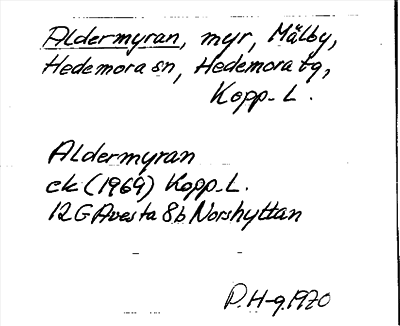 Aldermyran, myr, Mälby,
Hedemora sn, Hedemora tg,
Kopp. L.
Aldermyran
ek (1969) Kopp. L.
12G Avesta 8b Norshyttan
P. H-g. 1970